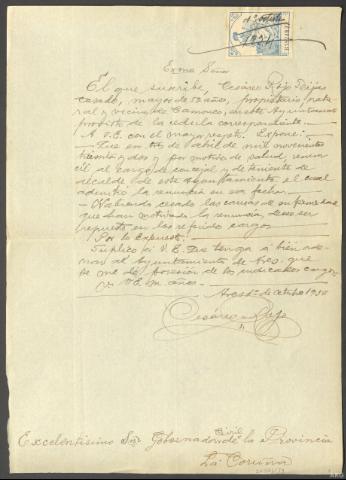 1º octubre
1934
Exmo Señor
El que suscribe, Cesáreo Rojo Teijas
casado, mayor de 52 años, propietario, natu-
ral y vecino de Camouco, en este Ayuntamiento
provisto de la cedula correspondiente
A V.E. con el mayor respeto. Expone:
Que en de Abril de mil novecientos
treinta y dos y por motivo de salud, renun-
ció al cargo de concejal y de teniente de
alcalde de este Ayuntamiento, el cual
admitió la renuncia en esa fecha.
Habiendo cesado las causas de enfermedad
que habian motivado la renuncia, desea ser
repuesto en los referidos cargos
Por lo Expuesto
Suplico á V. E. Que tenga á bien orde-
nar al Ayuntamiento de Ares. que
se me dé posesión de los indicados cargos
V.E. m. años.
Ares 1º de octubre 1934
Cesáreo Rojo
Excelentísimo Sr. Gobernador civil de la Provincia
La Coruña